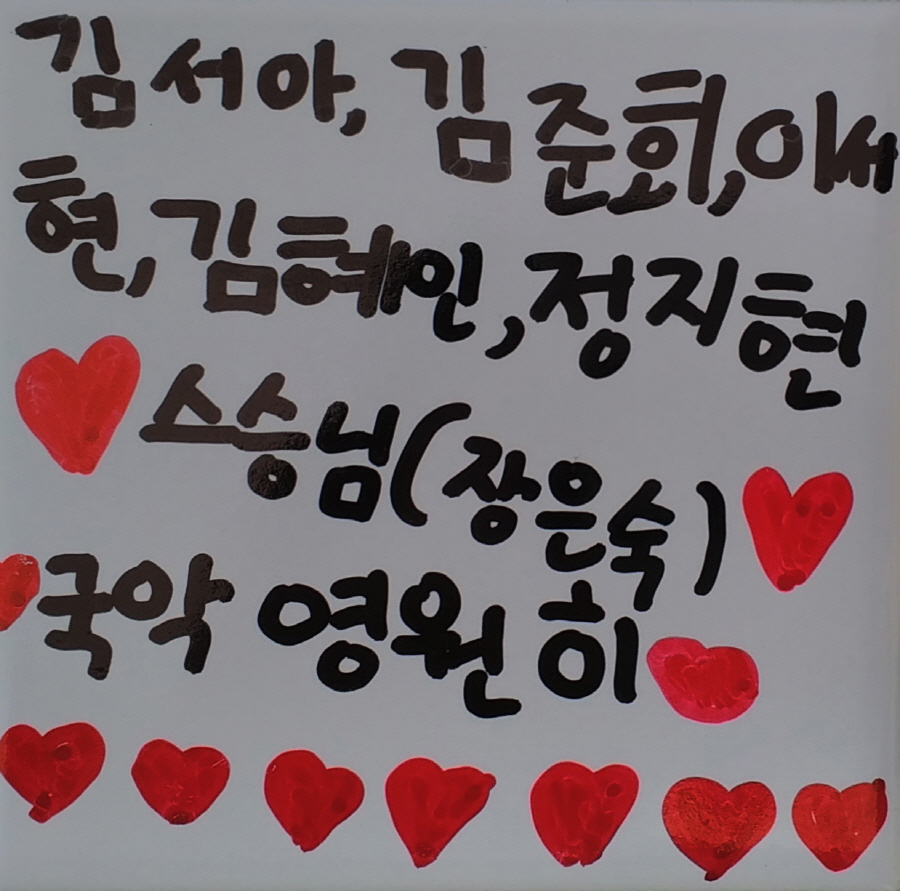 김서아, 김준희, 이서
현, 김혜인, 정지현
스승님(장은숙)
국악 영원히